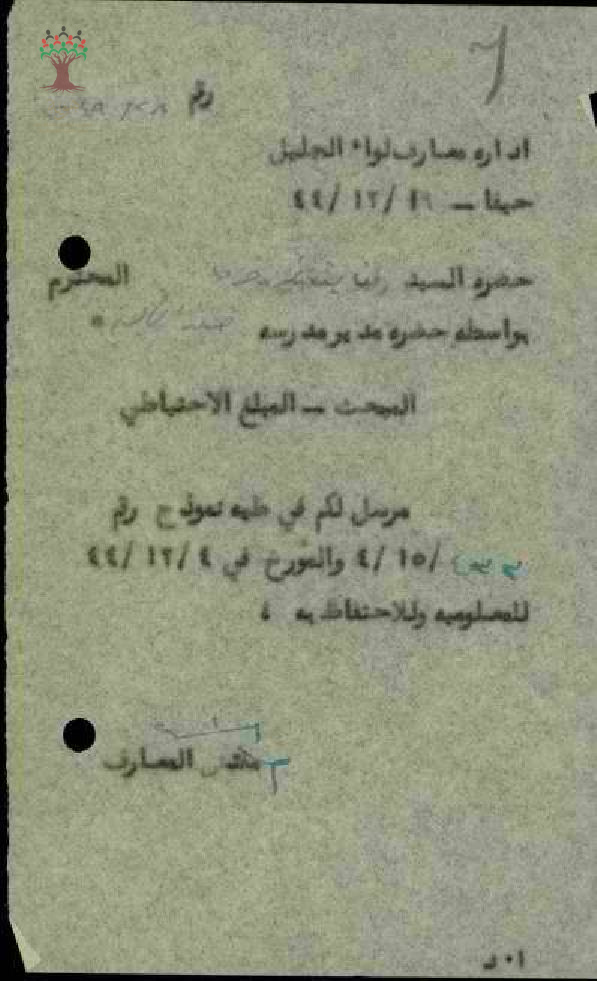 رقم
اداره معارف لواء الجليل
حيفا ــ ١٦ /١٢ /٤٤
حضره السيد المحترم
بواسطه حضره مدير مدرسه
المبحث ــ المبلغ الاحتياطي
مرسل لكم في طيه نموذج رقم
/١٥ /٤ والمورخ في ٤ /١٢ /٤٤
للمعلوميه وللاحتفاظ به ،
مفتش المعارف
ا٠ د